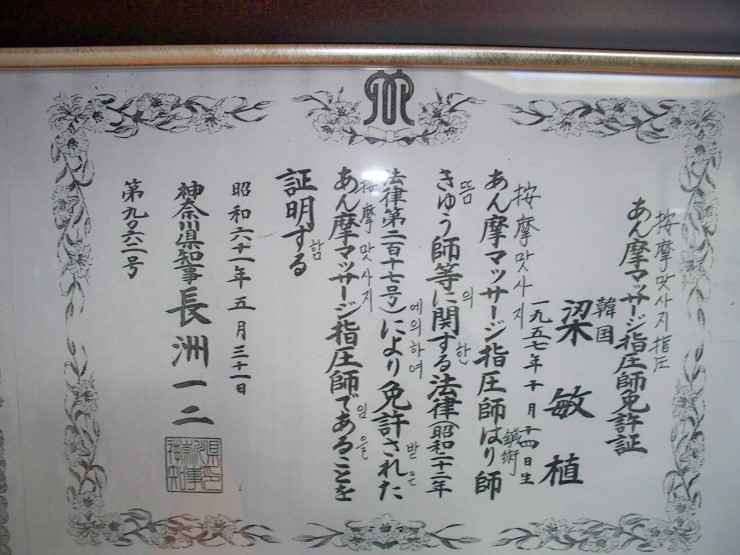 按摩맛사지指圧
あん摩マッサージ指圧師免許証
韓国
梁敏植
一九五七年十月十四日生
按摩맛사지
鍼術
あん摩マッサージ指圧師はり師
뜸 의 한
きゆう師等に関する法律(昭和二十二年
에의하여 받은
法律第二百十七号)により免許された
按摩맛사지 임을
あん摩マッサージ指圧師であることを
함
証明する
昭和六十一年五月三十一日
神奈川県知事長洲一二
第九〇六二号